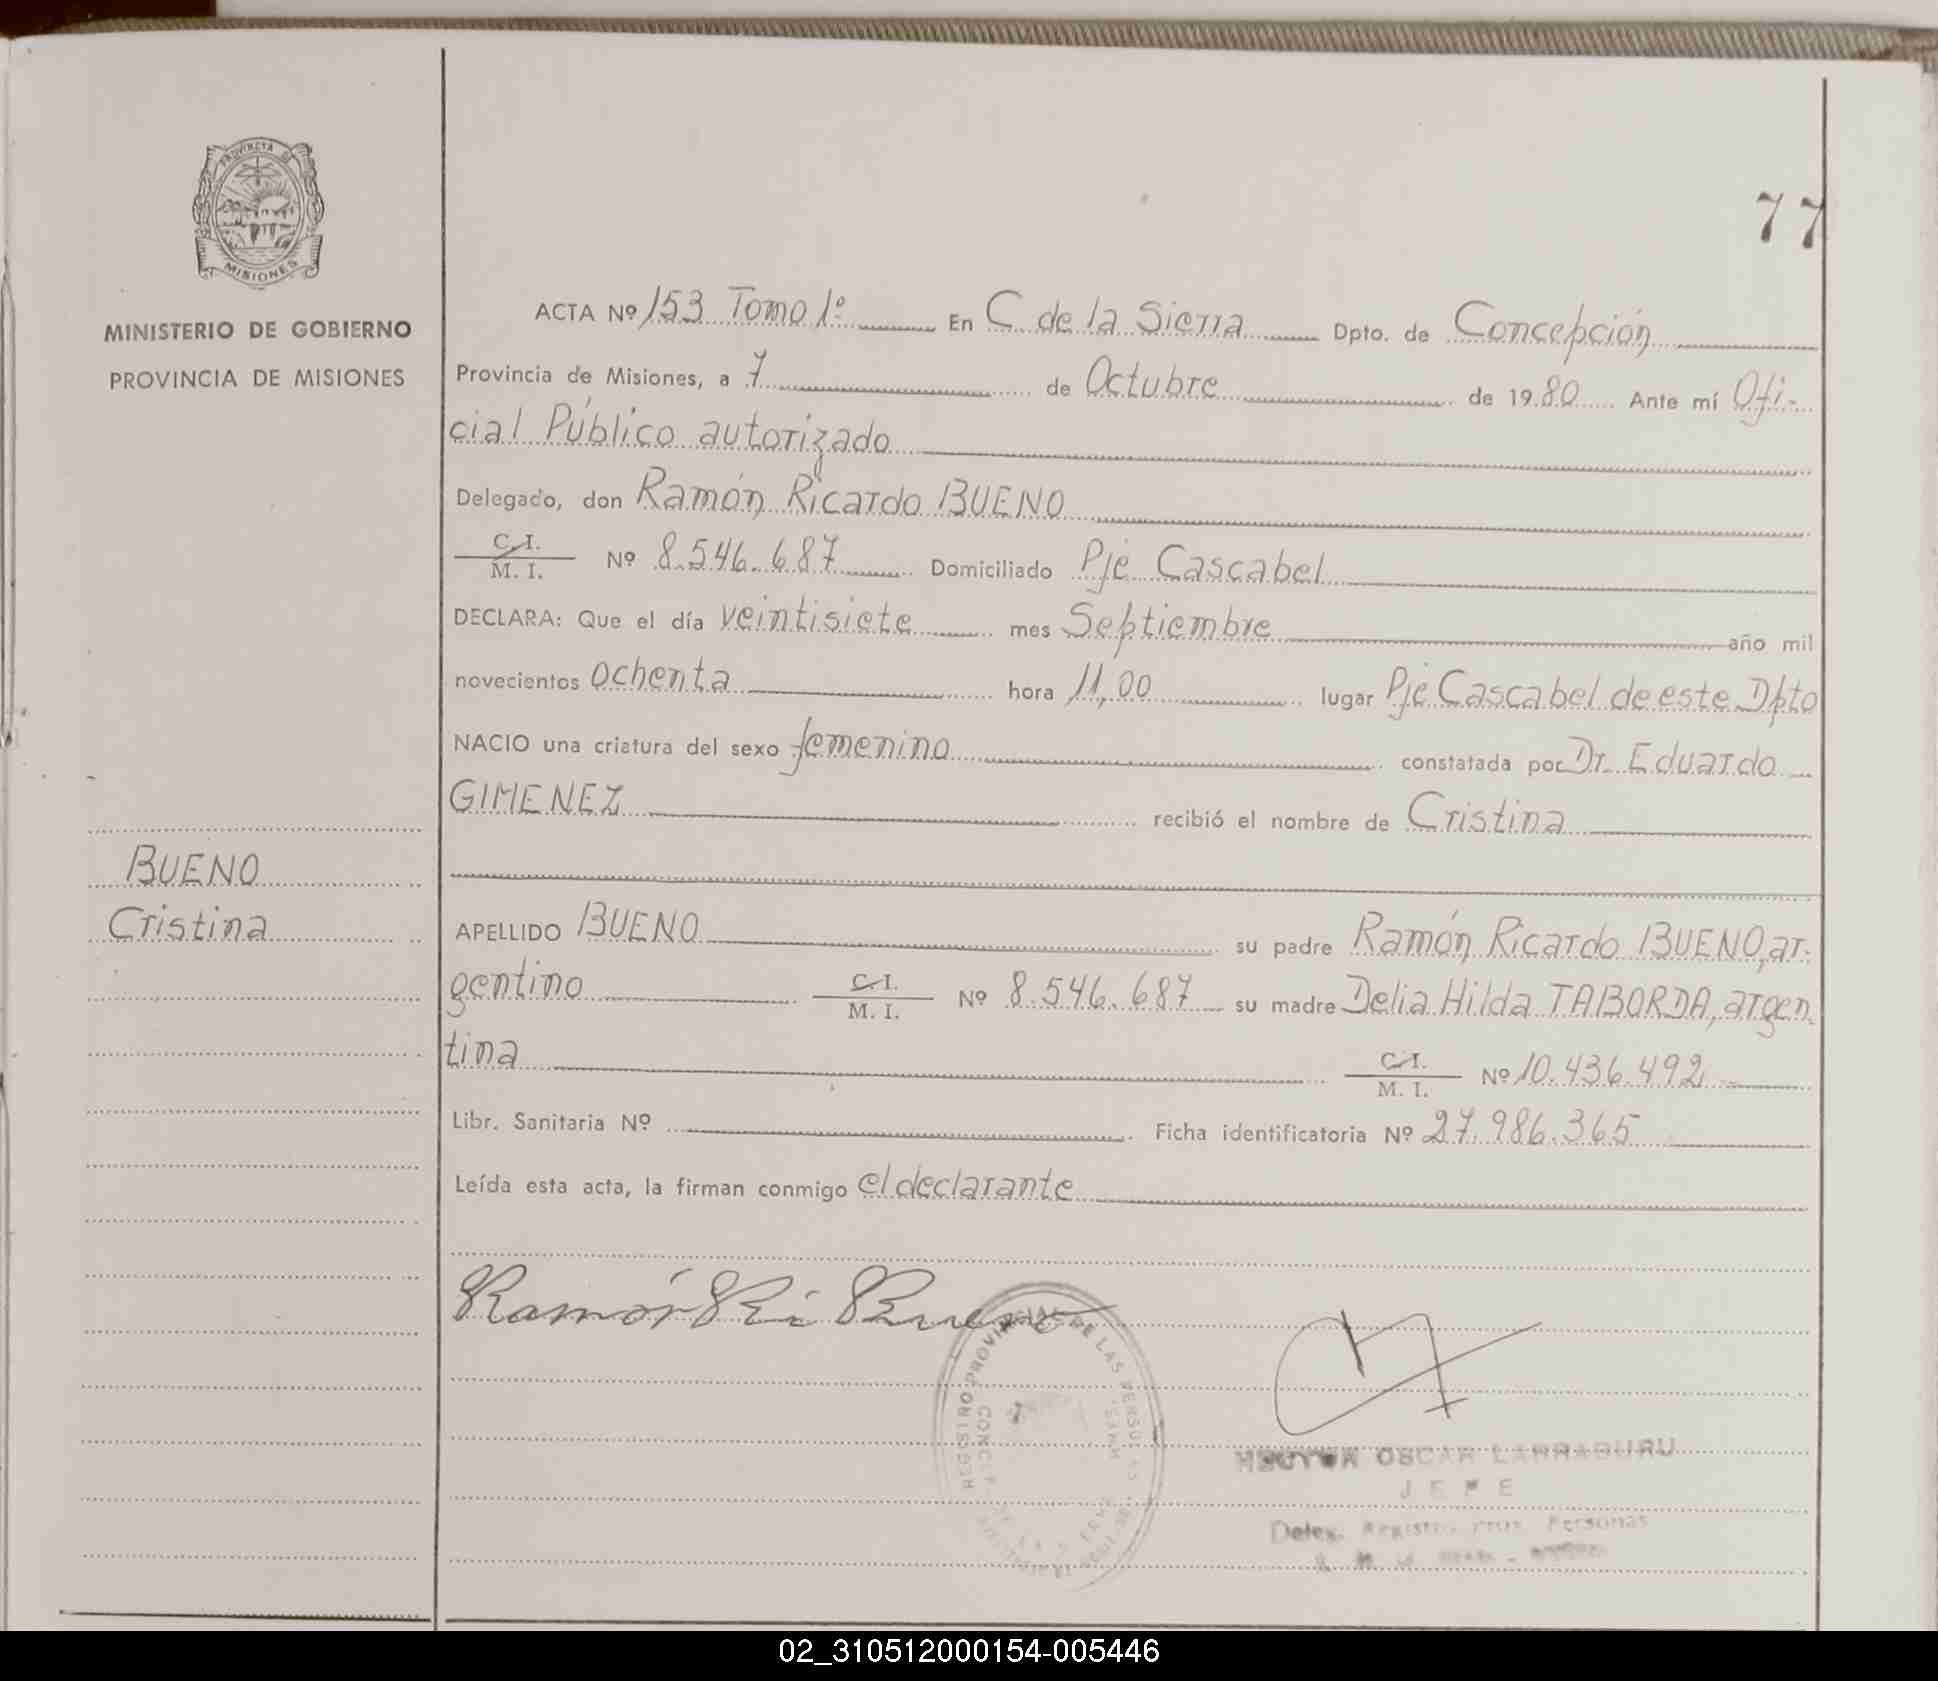 PROVINCIA DE
MISIONES
MINISTERIO DE GOBIERNO
PROVINCIA DE MISIONES
BUENO
Cristina
77
ACTA Nº 153 Tomo 1º En C. de la Sierra Dpto. de Concepción
Provincia de Misiones, a 7 de Octubre de 1980 Ante mí Ofi-
cial Público autorizado
Delegado, don Ramón Ricardo BUENO
C. I.
M. I. Nº 8.546.687 Domiciliado Pje Cascabel
DECLARA: Que el día veintisiete mes Septiembre año mil
novecientos ochenta hora 11,00 lugar Pje Cascabel de este Dpto
NACIO una criatura del sexo femenino constatada por Dr. Eduardo
GIMENEZ recibió el nombre de Cristina
APELLIDO BUENO su padre Ramón Ricardo BUENO, ar-
gentino C. I. M. I. Nº 8.546.687 su madre Delia Hilda TABORDA, argen-
tina C. I. M. I. Nº 10.436.492
Libr. Sanitaria Nº Ficha identificatoria Nº 27.986.365
Leída esta acta, la firman conmigo el declarante
Ramón Ri Bueno
REGISTRO PROVINCIAL DE LAS PERSONAS
HECTOR OSCAR LARRABURU
JEFE
Deleg. Registro Prov. Personas
02_310512000154-005446